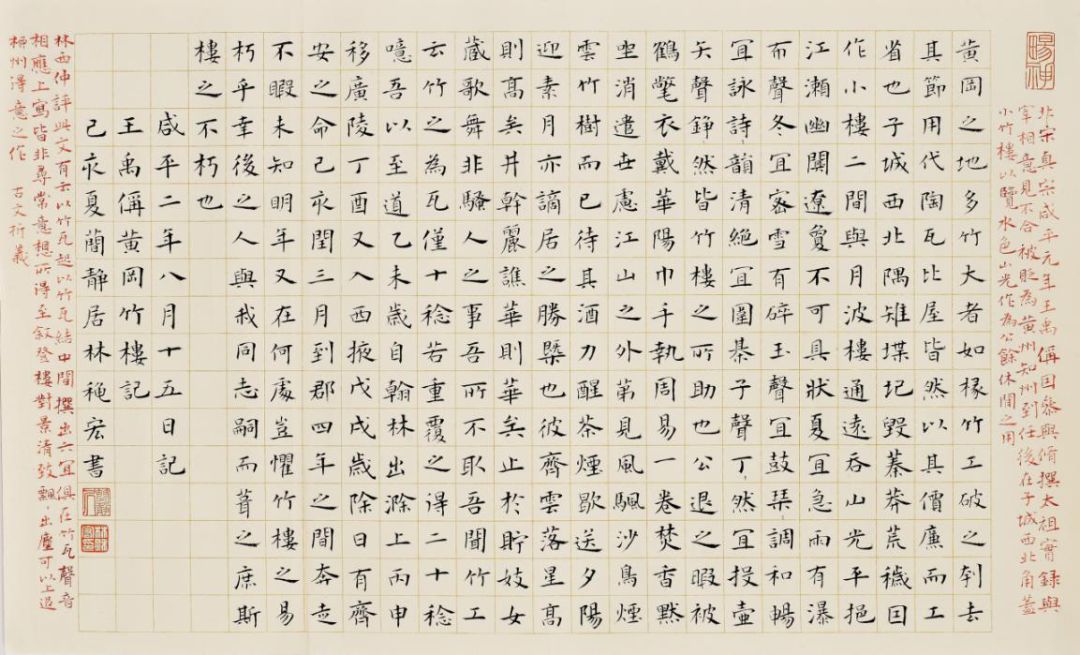 北宋真宗咸平元年王禹偁因參與脩撰太祖實錄與
宰相意見不合被貶為黃州知州到任後在子城西北角蓋
小竹樓以覽水色山光作為公餘休閒之用
黃岡之地多竹大者如椽竹工破之刳去
其節用代陶瓦比屋皆然以其價廉而工
省也子城西北隅雉堞圮毀蓁莽荒穢因
作小樓二間與月波樓通遠吞山光平挹
江瀨幽闃遼敻不可具狀夏宜急雨有瀑
布聲冬宜密雪有碎玉聲宜鼓琴調和暢
宜詠詩韻清絕宜圍棊子聲丁然宜投壺
矢聲錚然皆竹樓之所助也公退之暇被
鶴氅衣戴華陽巾手執周易一卷焚香默
坐消遣世慮江山之外第見風颿沙鳥煙
雲竹樹而已待其酒力醒茶煙歇送夕陽
迎素月亦謫居之勝槩也彼齊雲落星高
則高矣井幹麗譙華則華矣止於貯妓女
藏歌舞非騷人之事吾所不取吾聞竹工
云竹之為瓦僅十稔若重覆之得二十稔
噫吾以至道乙未歲自翰林出滁上丙申
移廣陵丁酉又入西掖戊戌歲除日有齊
安之命己亥閏三月到郡四年之間奔走
不暇未知明年又在何處豈懼竹樓之易
朽乎幸後之人與我同志嗣而葺之庶斯
樓之不朽也
咸平二年八月十五日記
王禹偁黃岡竹樓記
己亥夏蘭靜居林穐宏書
林西仲評此文有云以竹瓦起以竹瓦結中間撰出六宜俱在竹瓦聲音
相應上寫皆非尋常意想所得至敘登樓對景清致飄飄出塵可以上追
柳州得意之作 古文析義